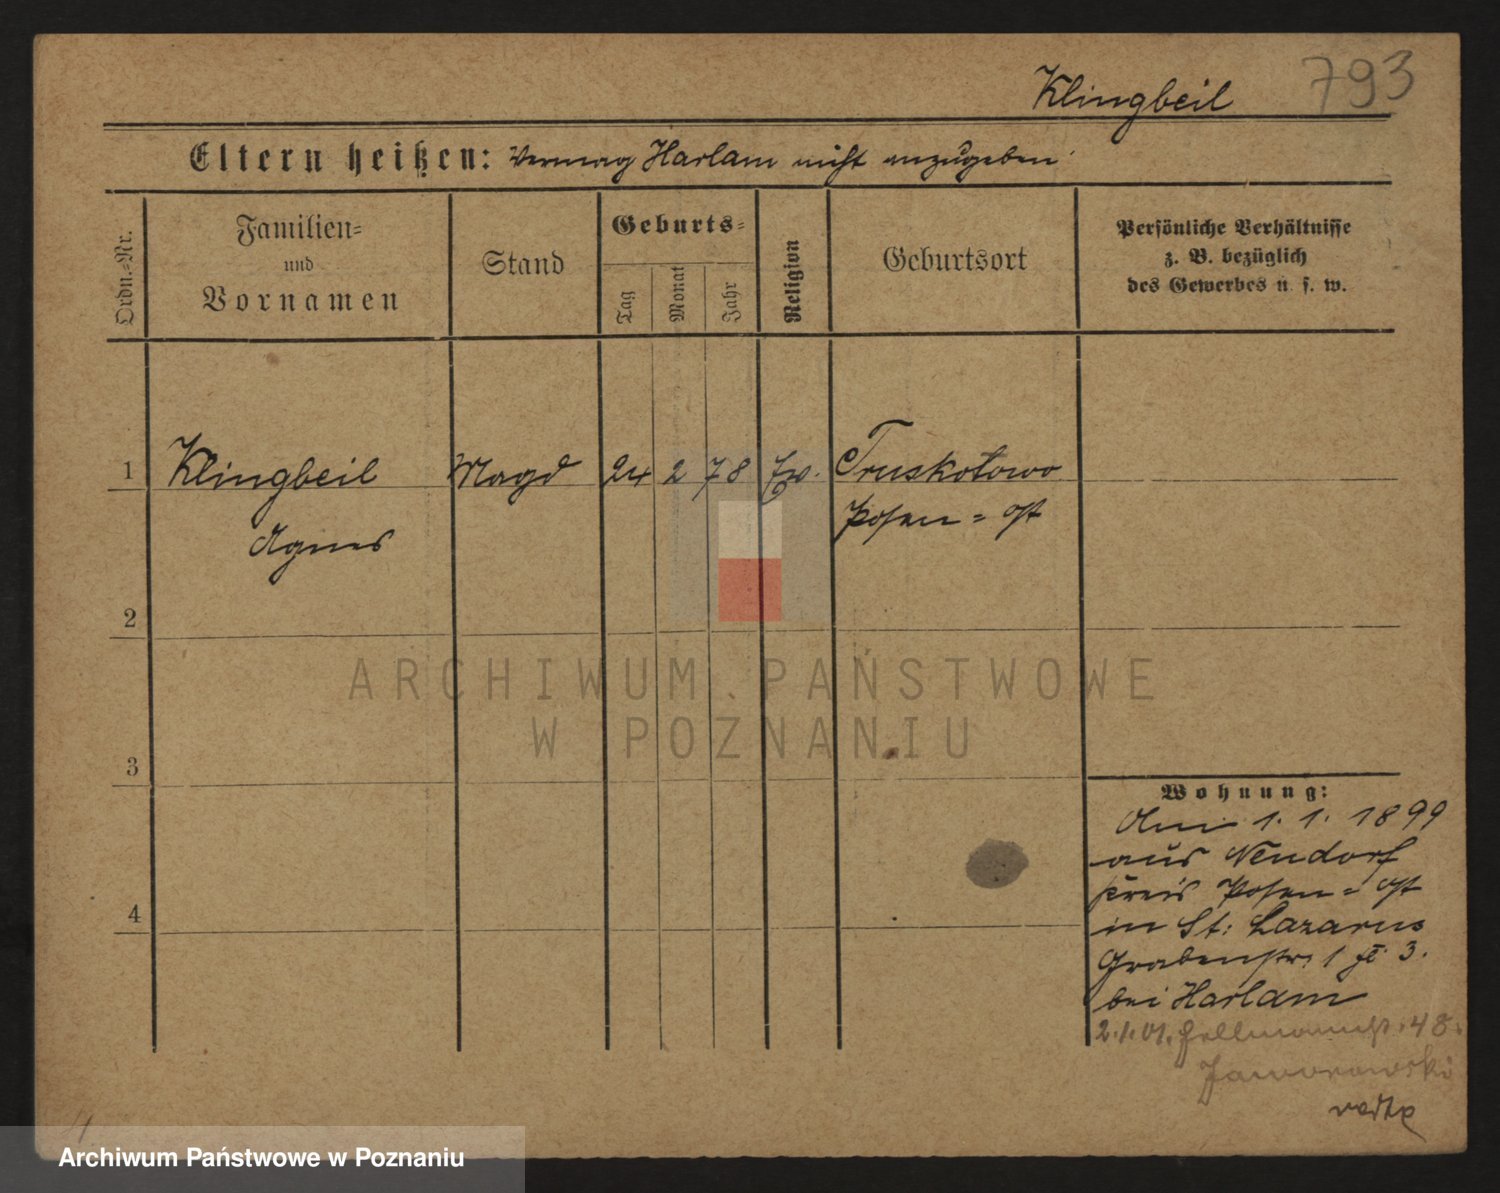 Klingbeil 793
Eltern heißen: Vermag Harlam nicht anzugeben
Ordn.-Nr.
Familien-
und
Vornamen
Stand
Geburts-
Tag
Monat
Jahr
Religion
Geburtsort
Persönliche Verhältnisse
z. B. bezüglich
des Gewerbes u. s. w.
1 Klingbeil Magd 24 2 78 Ev. Truskotowo
Agnes Posen = Ost
2
3
4
Wohnung:
Am 1. 1. 1899
aus Neudorf
Kreis Posen = Ost
in St: Lazarus
Grabenstr. 1 3.
bei Harlam
2.1.01. 48.
Jaworowski
ARCHIWUM PAŃSTWOWE
W POZNANIU
Archiwum Państwowe w Poznaniu